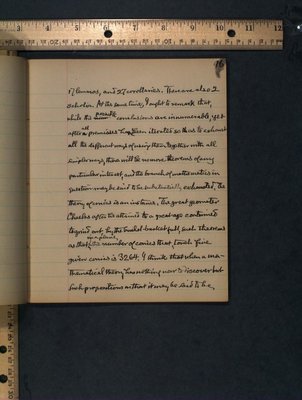 16
of lemmas, and 27 corollaries. There are also 2
scholia. At the same time, I ought to remark that,
while the possible conclusions are innumerable, yet
after all premisses have been iterated so as to exhaust
all the different ways of using them, together with all
simpler ways, there will be no more theorems of any
particular interest, and the branch of mathematics in
question may be said to be substantially exhausted. The
theory of conics is an instance. The great geometer
Chasles after he attained to a great age continued
to grind out, by the bushel-basket full, such theorems
as that the number of conics in a plane that touch five
given conics is 3264. I think that when a ma-
thematical theory has nothing new to discover but
such propositions as that it may be said to be,